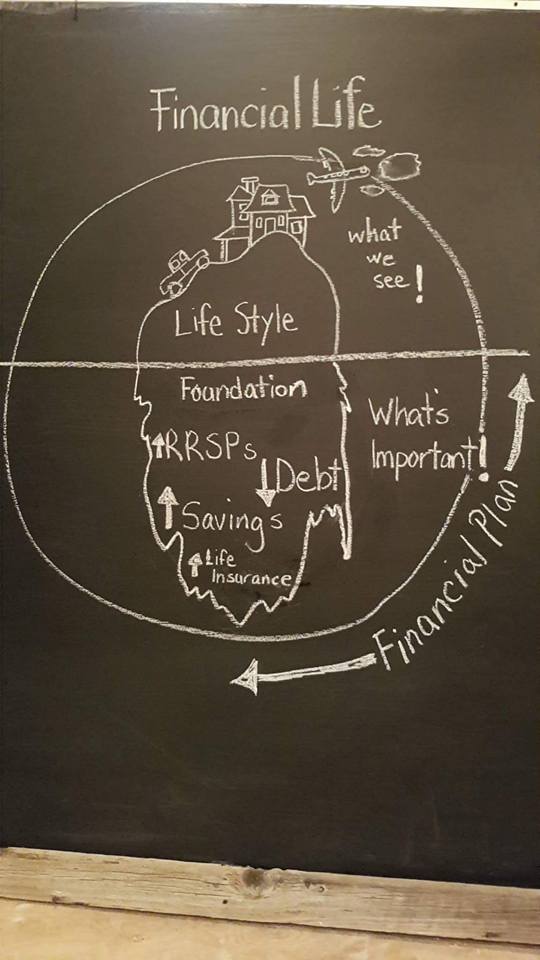 Financial Life
what
we
see!
Life Style
Foundation
RRSPs
Debt
Savings
Life
Insurance
What's
Important!
Financial Plan